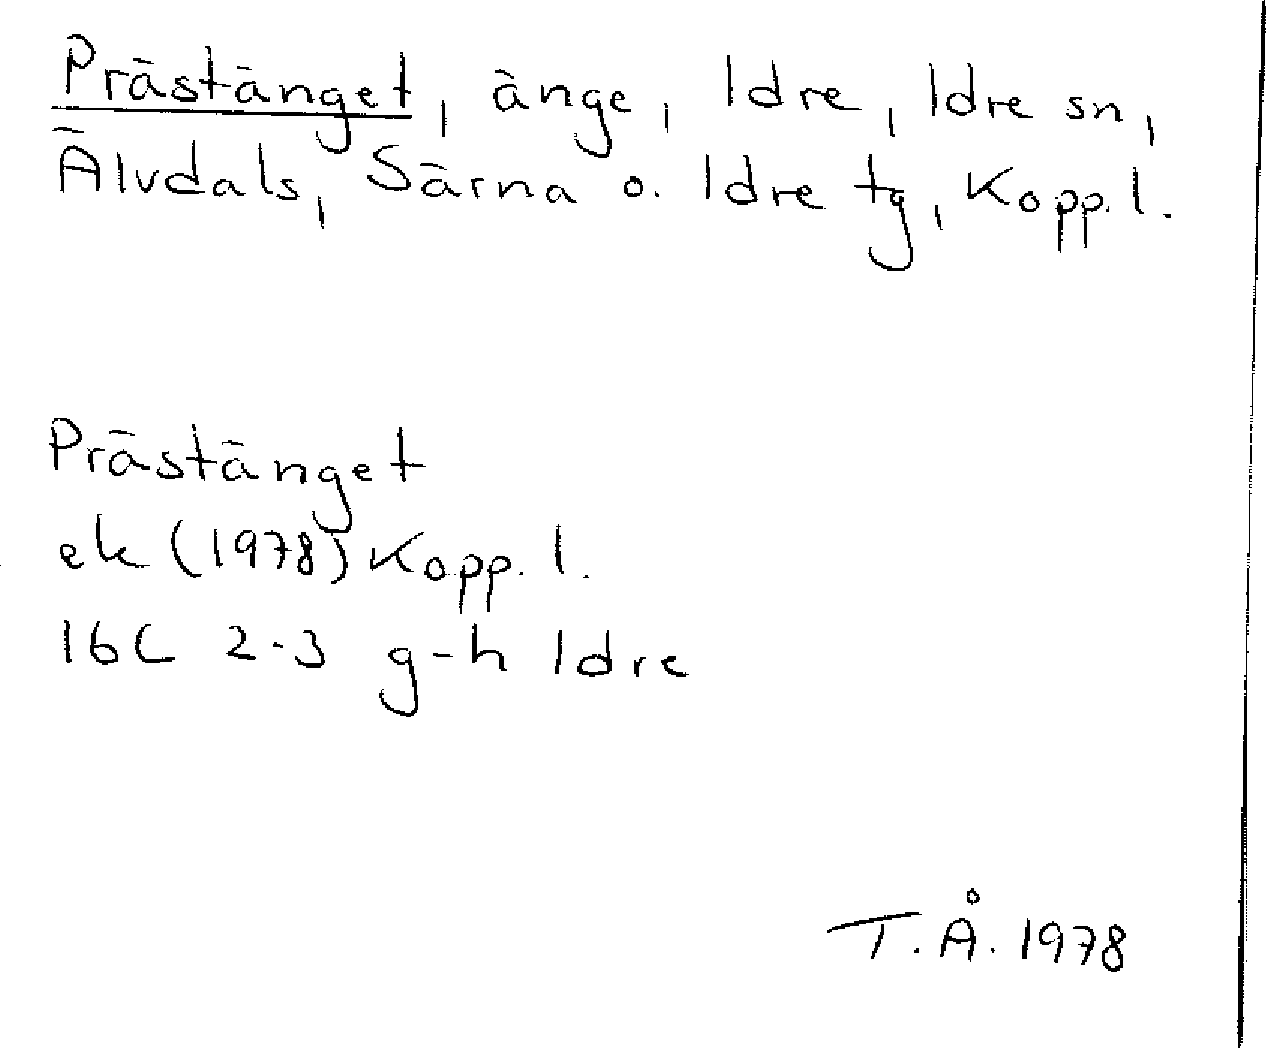 Prästänget, änge, Idre, Idre sn,
Älvdals, Särna o. Idre tg, Kopp. l.
Prästänget
ek (1978) Kopp. l.
16C 2-3 g-h Idre
T.Å. 1978